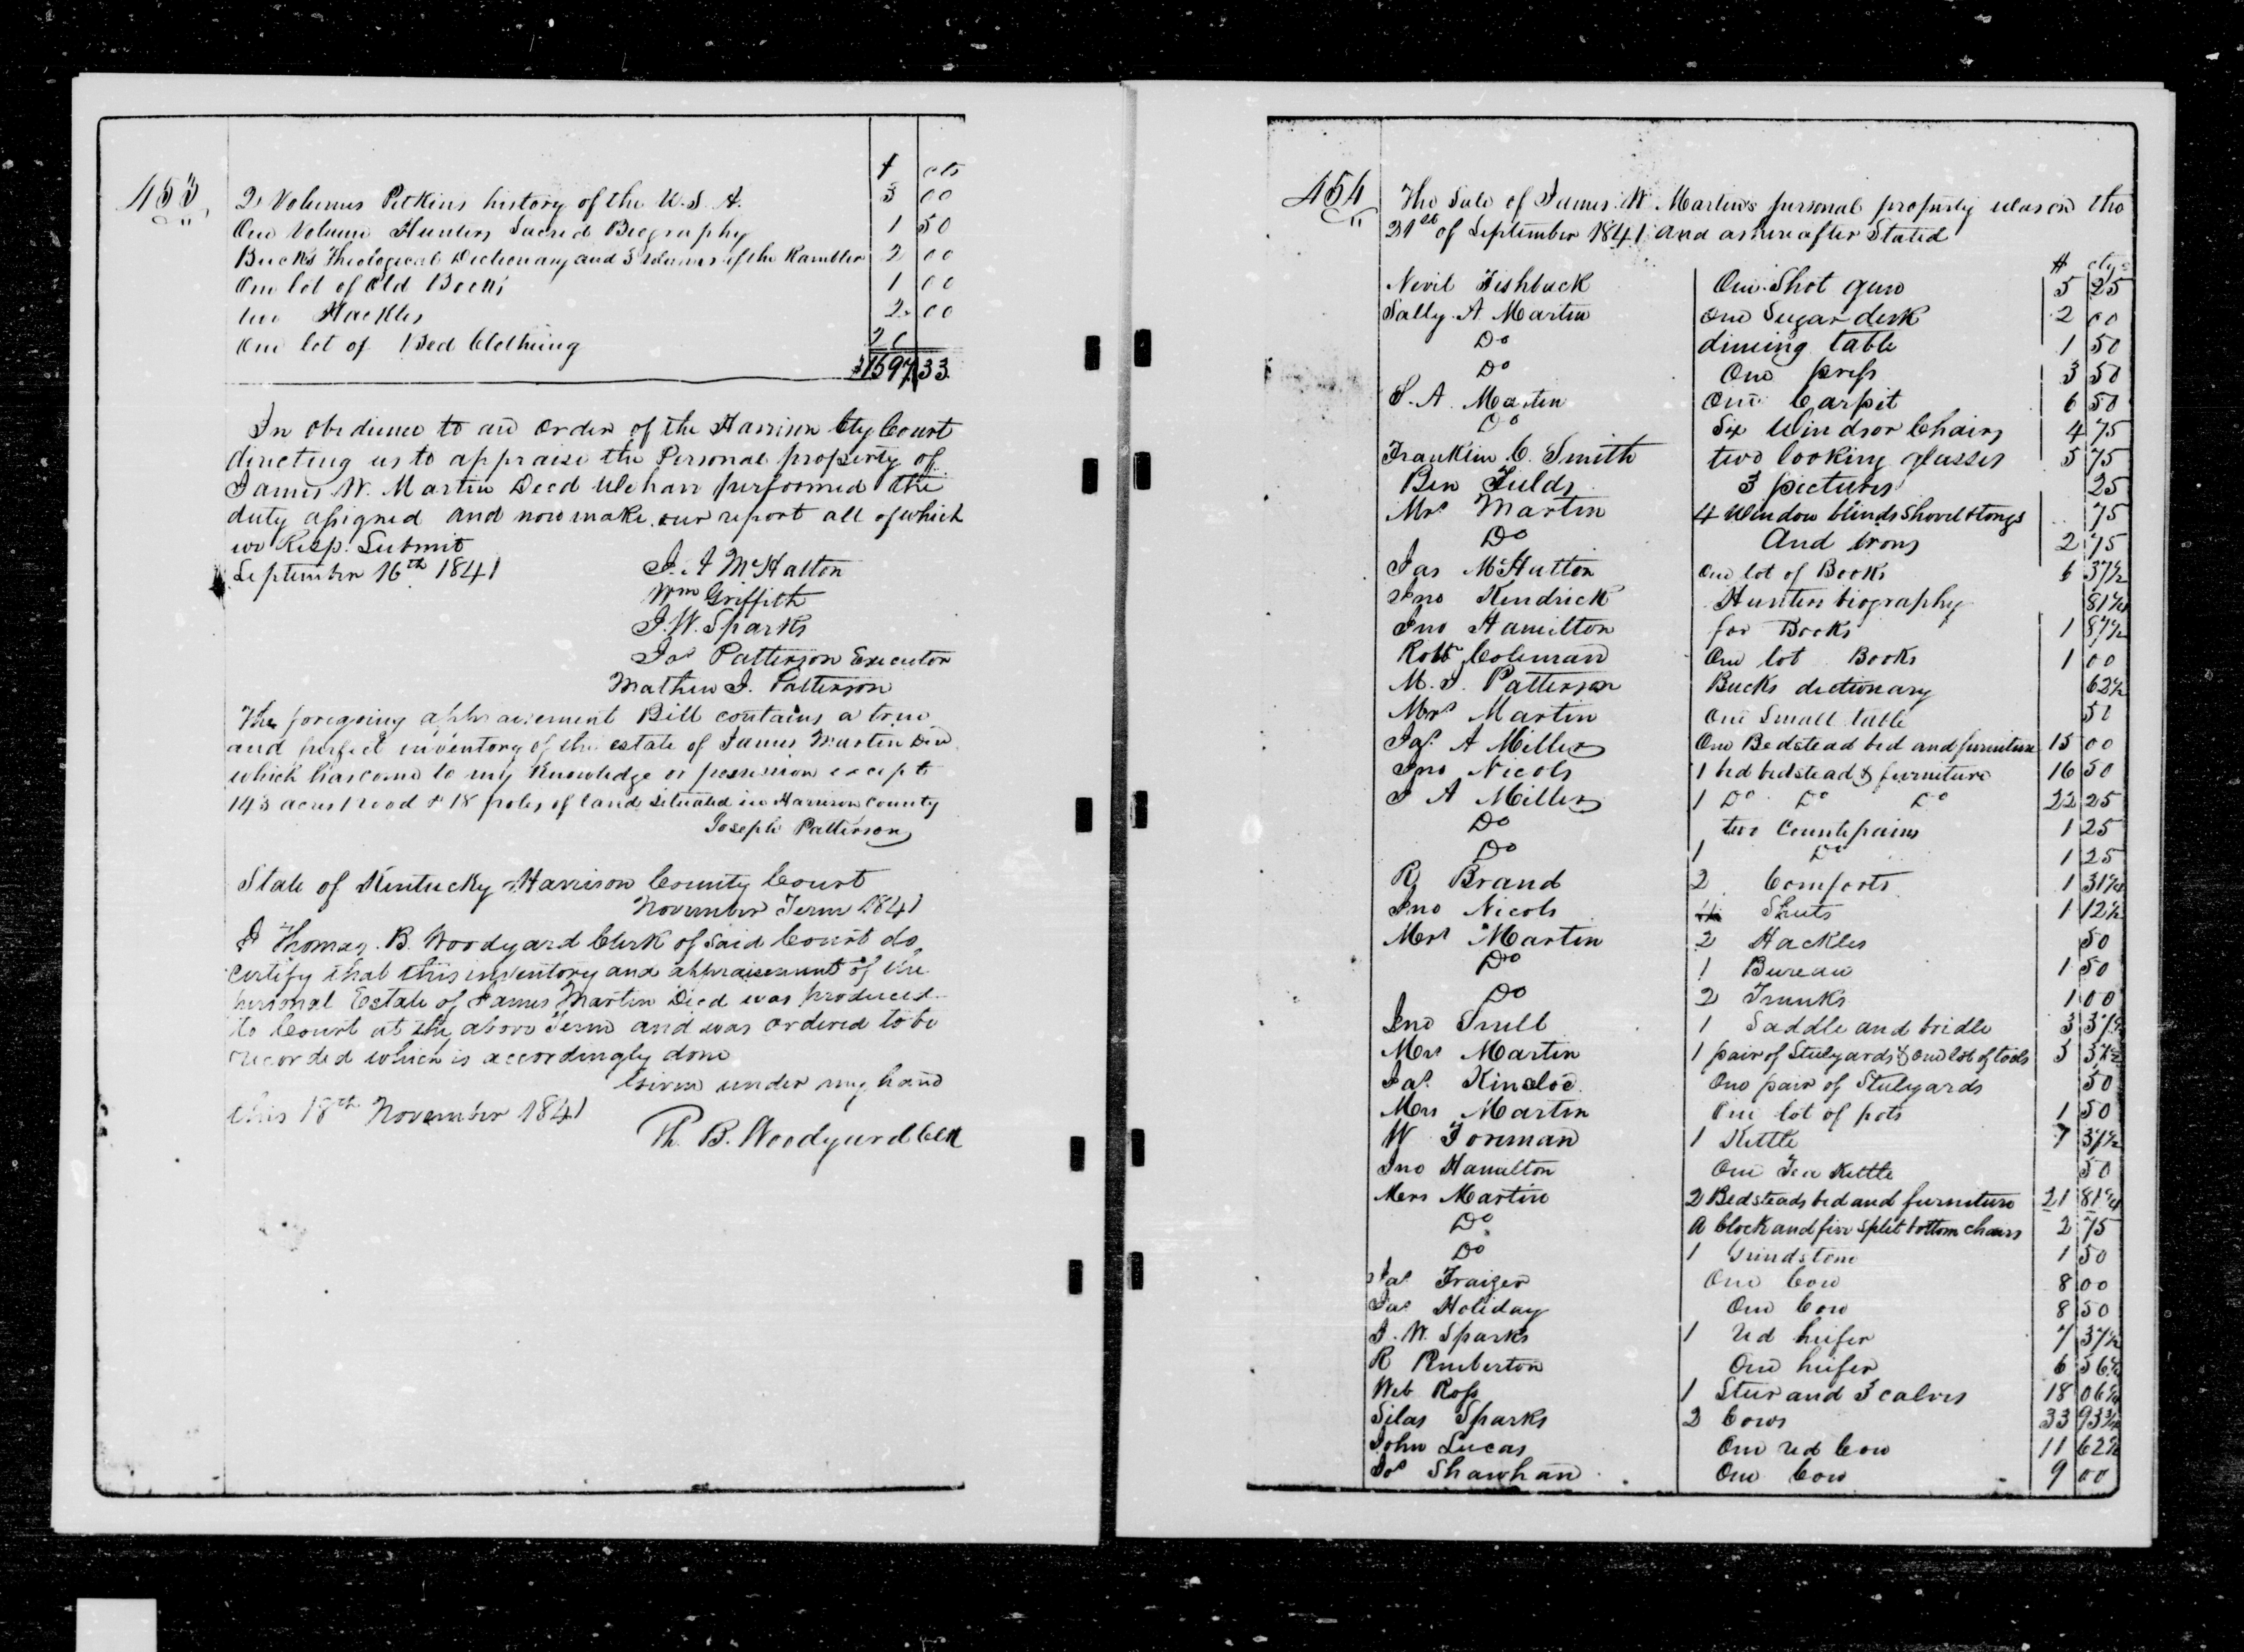 453
$ cts
2 Volumes Pitkins history of the U.S.A. 3 00
One Volume Hunters Sacred Biography 1 50
Bucks Theological Dictionary and 3 volumes of the Rambler 2 00
One lot of old Books 1 00
two Hackles 2 00
one lot of Bed Clothing
$1597 33
In obedience to an order of the Harrison Cty Court
directing us to appraise the Personal property of
James W. Martin Decd We have performed the
duty assigned and now make our report all of which
we Resp. Submit
September 16th 1841 J. A McHatton
Wm Griffith
J. W. Sparks
Jos Patterson Executor
Mathew J. Patterson
The foregoing appraisement Bill contains a true
and perfect inventory of the estate of James Martin Decd
which has come to my knowledge or possession except
143 acres 1 rood & 18 poles of land situated in Harrison County
Joseph Patterson
State of Kentucky Harrison County Court
November Term 1841
I Thomas. B. Woodyard Clerk of said Court do
certify that this inventory and appraisement of the
personal Estate of James Martin Decd was produced
to Court at the above Term and was ordered to be
recorded which is accordingly done
Given under my hand
this 18th November 1841
Th. B. Woodyard Clk
454
The Sale of James. W. Martins personal property was on the
21st of September 1841 and as hereafter Stated
$ cts
Nevil Fishback One Shot gun 5 25
Sally. A Martin one Sugar desk 2 00
Do dining table 1 50
Do One press 3 50
S. A. Martin One Carpit 6 50
Do Six Windsor Chairs 4 75
Franklin C. Smith two looking glasses 5 75
Ben Fields 3 pictures 25
Mrs Martin 4 Window blinds Shovel & tongs 75
Do And Irons 2 75
Jas McHutton one lot of Books 6 37½
Jno Kendrick Hunters biography 81¼
Jno Hamilton for Books 1 87½
Robt Coleman One lot Books 1 00
M. J. Patterson Bucks dictionary 62½
Mrs Martin One Small table 50
Jas. A Miller One Bedstead bed and furniture 15 00
Jno Nicols 1 bed bedstead & furniture 16 50
J A Miller 1 Do Do Do 22 25
Do two Counterpains 1 25
Do 1 Do 1 25
R Brand 2 Comforts 1 31¼
Jno Nicols Sheets 1 12½
Mrs Martin 2 Hackles 50
Do 1 Bureau 1 50
Do 2 Trunks 1 00
Jno Snell 1 Saddle and bridle 3 37½
Mrs Martin 1 pair of Stulyards & one lot of tools 3 37½
Jas. Kinsloe One pair of Stulyards 50
Mrs Martin One lot of pots 1 50
W Foreman 1 Kettle 7 37½
Jno Hamilton One Tea Kettle 50
Mrs Martin 2 Bedsteads bed and furniture 21 81¼
Do A Clock and five Split bottom chairs 2 75
Do 1 Grindstone 1 50
Jas Fraizer One Cow 8 00
Jas Holiday One Cow 8 50
J. W. Sparks 1 red heifer 7 37½
R Pemberton One heifer 6 56¼
Web Ross 1 Steer and 3 calves 18 06¼
Silas Sparks 2 Cows 33 93¾
John Lucas One red Cow 11 62½
Jos Shawhan One Cow 9 00